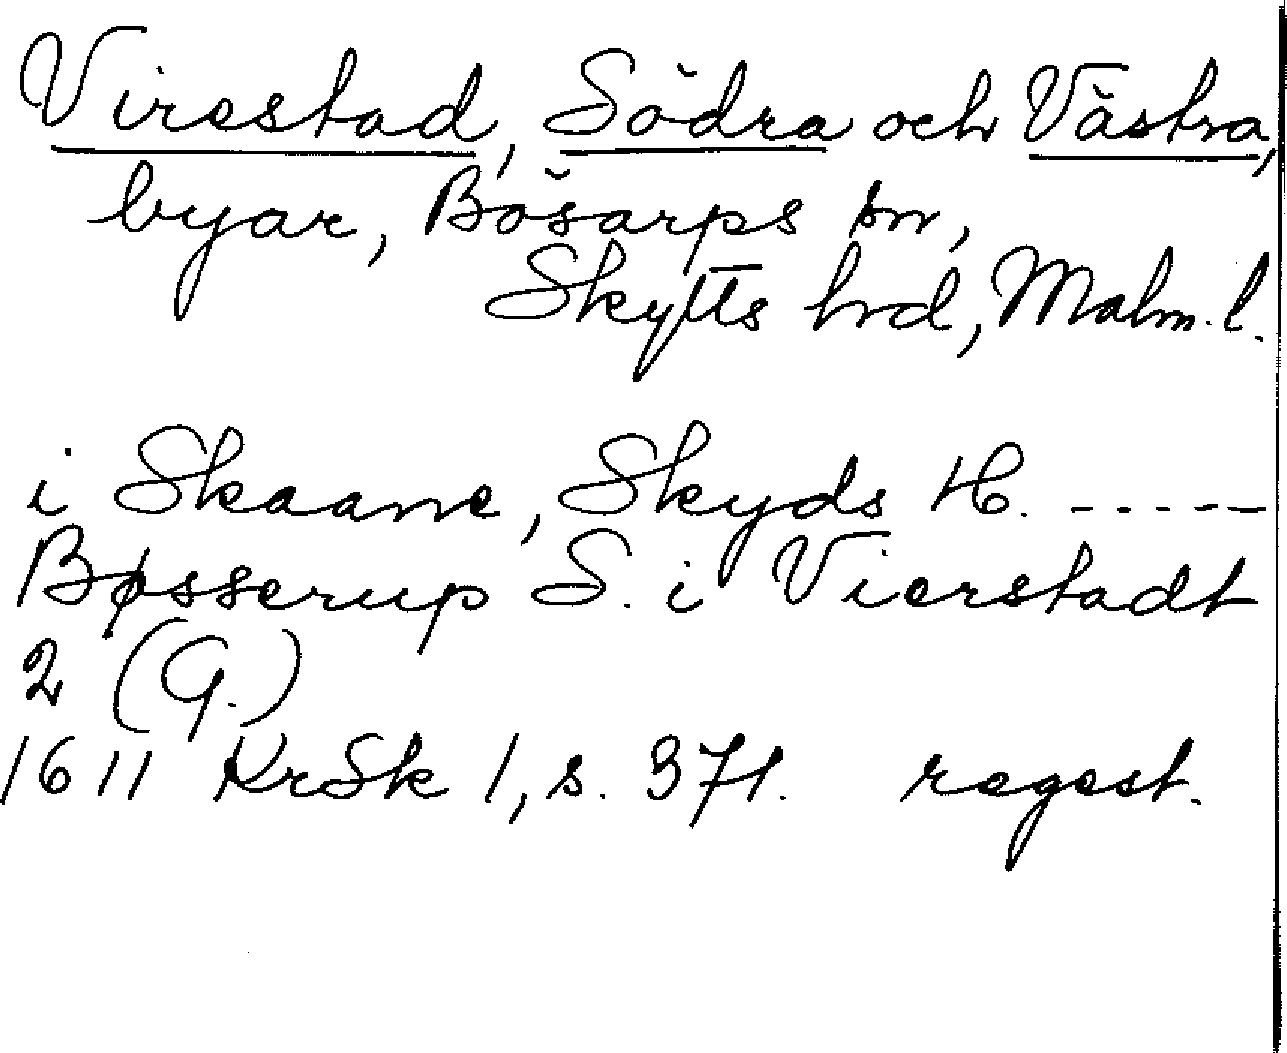 Virestad, Södra och Västra,
byar, Bösarps sn,
Skytts hrd, Malm. l.
i Skaane, Skyds H. -----
Bøsserup S. i Vierstadt
2 (G.)
1611 KrSk 1, s. 371. regest.